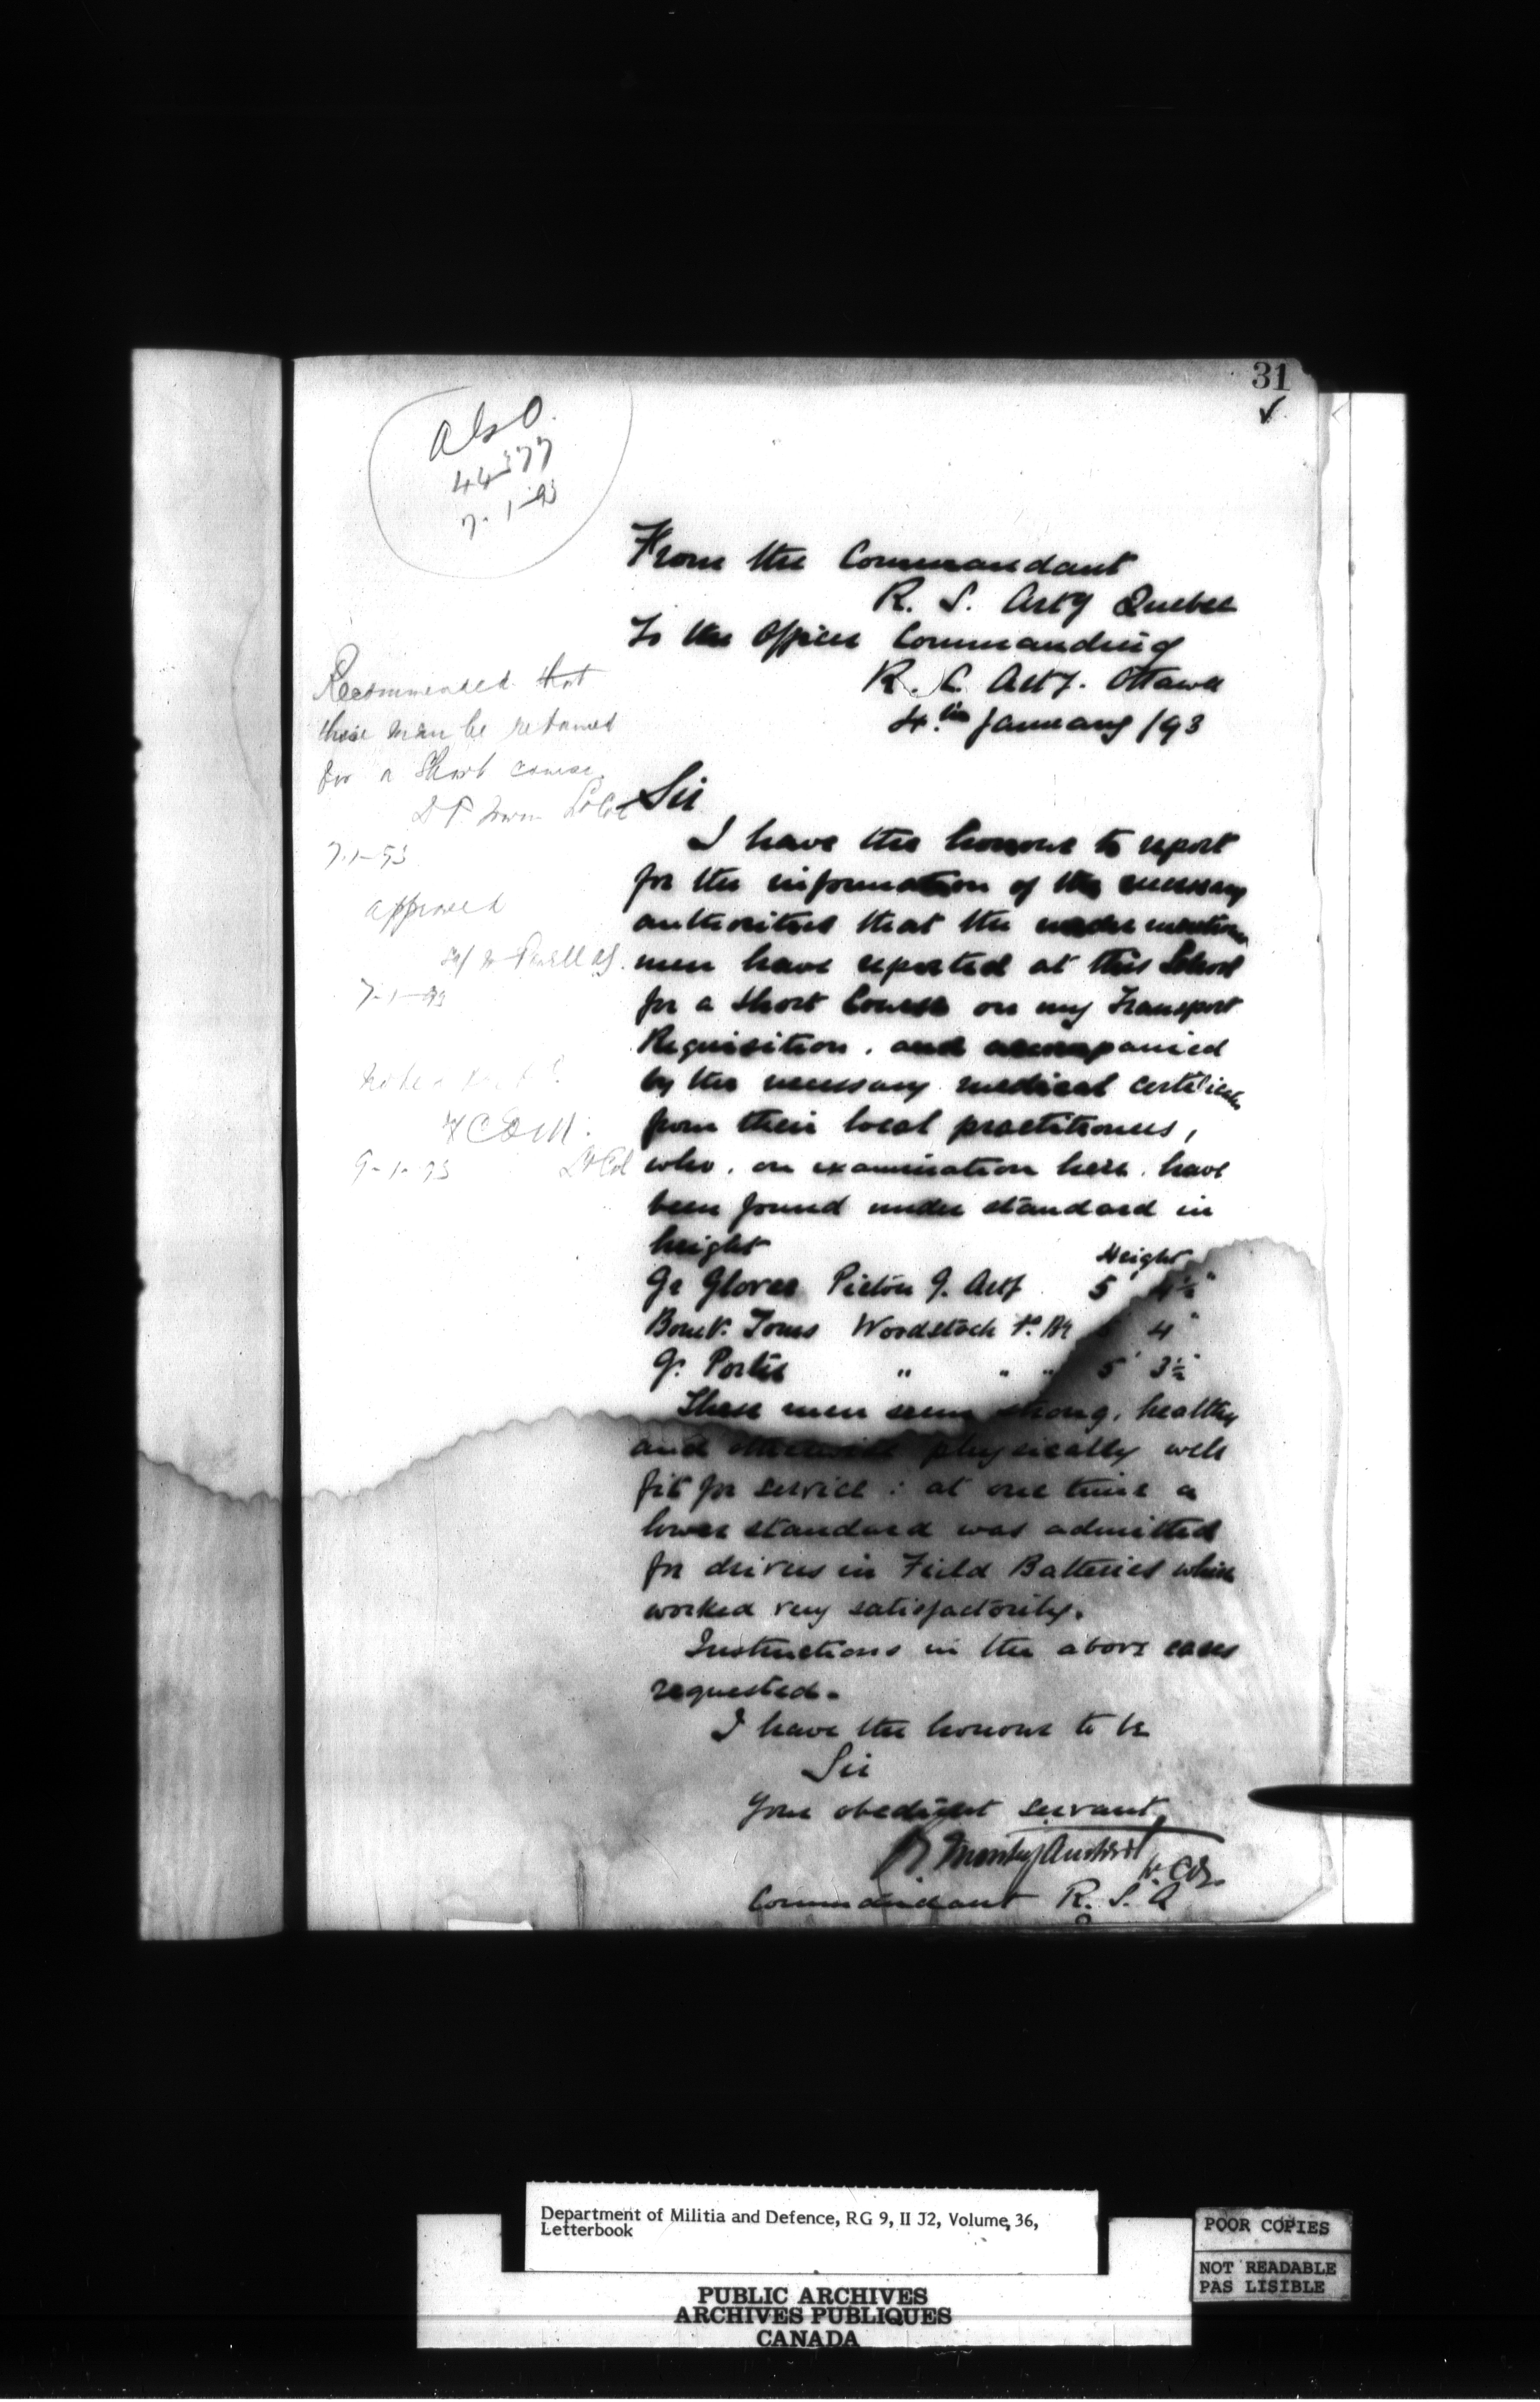 31
A G O.
44577
7-1-93
From the Commandant
R. S. Arty Quebec
To the Officer Commanding
R. C. Arty. Ottawa
4th January /93
Recommended that
these men be retained
for a Short course
D T Irwin Lt Col
7-1-93
approved
Powell AG.
7-1-93
Lt Col
9-1-93
Sir
I have the honour to report
for the information of the necessary
authorities that the under mention
men have reported at this School
for a Short Course on my Transport
Requisition, and accompanied
by the necessary medical certificates
from their local practitioners,
who, on examination here, have
been found under standard in
height
Height
Gr Glover Picton G. Arty 5' 4½"
Bombr. Toms Woodstock F. By 5' 4"
Gr. Porter " " " 5' 3½"
These men seem strong, healthy
and otherwise physically well
fit for service : at one time a
lower standard was admitted
for drivers in Field Batteries which
worked very satisfactorily.
Instructions in the above cases
requested.
I have the honour to be
Sir
Your obedient servant,
Lt Col.
Commandant R. S. A
Department of Militia and Defence, RG 9, II J2, Volume 36,
Letterbook
POOR COPIES
NOT READABLE
PAS LISIBLE
PUBLIC ARCHIVES
ARCHIVES PUBLIQUES
CANADA